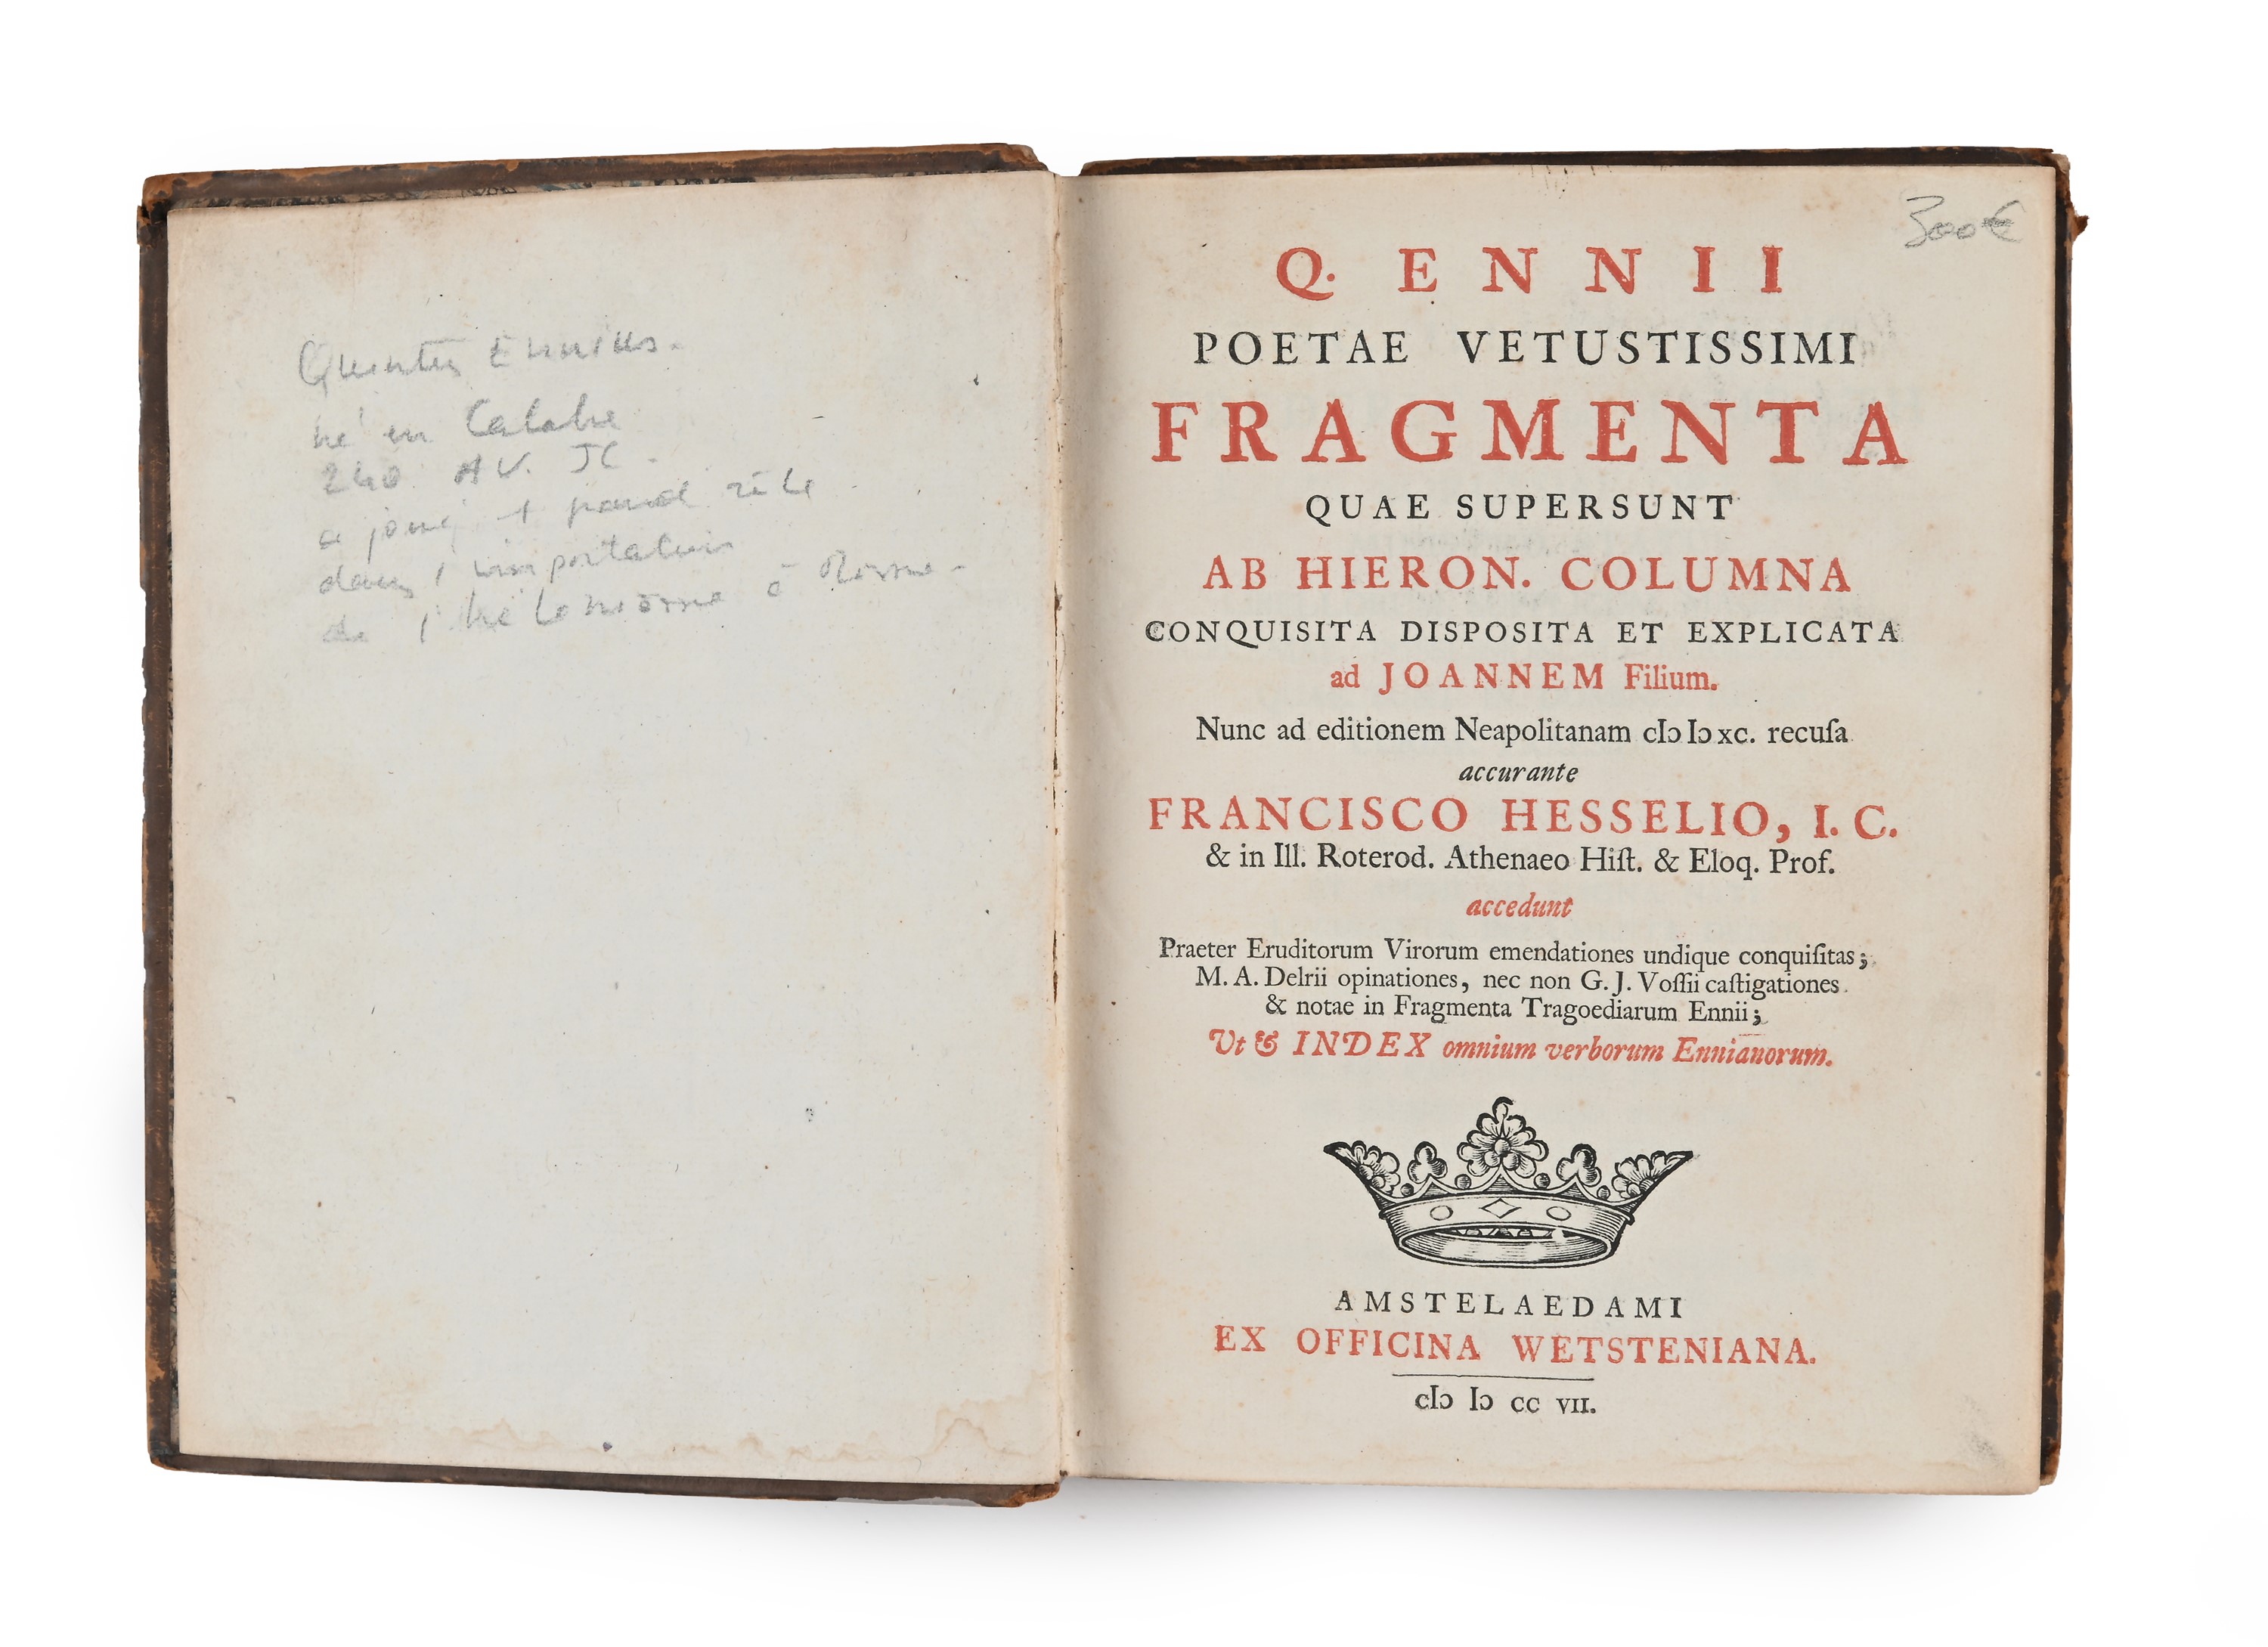 Quintus Ennius.
né en Calabre
240 AV. JC.
a joué 1 grand rôle
dans l'importation
de l'hellénisme à Rome.
300€
Q. ENNII
POETAE VETUSTISSIMI
FRAGMENTA
QUAE SUPERSUNT
AB HIERON. COLUMNA
CONQUISITA DISPOSITA ET EXPLICATA
ad JOANNEM Filium.
Nunc ad editionem Neapolitanam cIↄ Iↄ xc. recuſa
accurante
FRANCISCO HESSELIO, I. C.
& in Ill. Roterod. Athenaeo Hiſt. & Eloq. Prof.
accedunt
Praeter Eruditorum Virorum emendationes undique conquiſitas;
M. A. Delrii opinationes, nec non G. J. Voſſii caſtigationes
& notae in Fragmenta Tragoediarum Ennii;
Ut & INDEX omnium verborum Ennianorum.
AMSTELAEDAMI
EX OFFICINA WETSTENIANA.
cIↄ Iↄ cc vii.